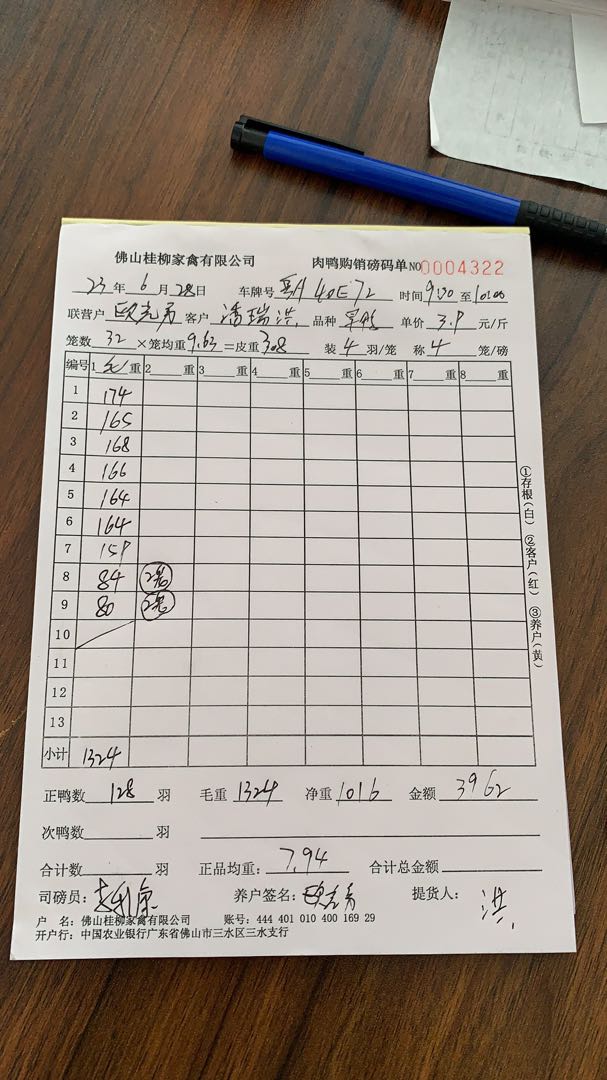 佛山桂柳家禽有限公司 肉鸭购销磅码单NO0004322
23年6月28日 车牌号 40E72 时间9:00至10:00
联营户 客户 潘瑞洪 品种 单价 3.9 元/斤
笼数 32 ×笼均重9.63=皮重308 装4羽/笼 称4笼/磅
编号 1毛重 2 重 3 重 4 重 5 重 6 重 7 重 8 重
1 174
2 165
3 168
4 166
5 164
6 164
7 159
8 84 2笼
9 80 2笼
10
11
12
13
小计 1324
正鸭数 128 羽 毛重 1324 净重 1016 金额 3962
次鸭数 羽
合计数 羽 正品均重: 7.94 合计总金额
司磅员: 养户签名: 提货人: 洪
户 名: 佛山桂柳家禽有限公司 账号: 444 401 010 400 169 29
开户行: 中国农业银行广东省佛山市三水区三水支行
①存根(白) ②客户(红) ③养户(黄)